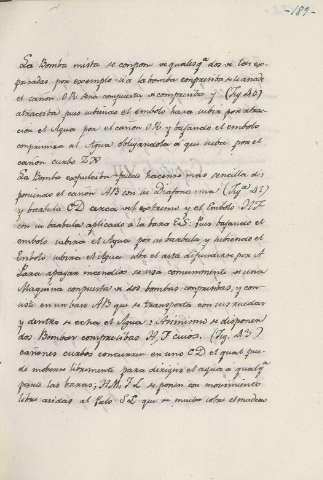 -189-
La Bomba mista se compon de qualesqa. dos de las ex-
presadas, por exemplo si a la bomba compresiba se le añade
el cañon OR será compuesta de compresiba y (Fig 40)
atractiba pues subiendo el embolo hará subir por atrac-
cion el Agua por el cañon OR y bajando el embolo
comprimira al Agua obligandola a que sube por el
cañon curbo
La Bomba expulsiba puede hacerse mas sencilla dis-
poniendo el cañon AB con su Diafracma (Figa. 41)
y barbula CD cerca su extremo y el Embolo
con su barbula aplicado a la bara pues bajando el
embolo subirá el Agua por su barbula y subiendo el
Embolo subirá el Agua sobre el asta difundirse por A
Para apagar incendios se usa comunmente de una
Maquina compuesta de dos bombas compresibas, y con-
siste en un baso AB que se transporta con sus ruedas
y dentro se echa el Agua: Asimismo se disponen
dos Bombas compresibas H, F cuios (Fig. 43)
cañones curbos concurren en uno CD el qual pue-
de moberse libremente para dirigir el agua a qualqa.
parte las baras; HM, IL se ponen con movimiento
libre asidas al Palo SL que se muebe sobre el madero